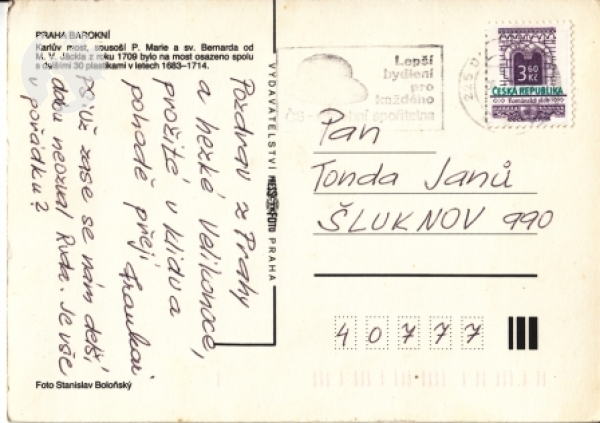 PRAHA BAROKNÍ
Karlův most, sousoší P. Marie a sv. Bernarda od
M. V. Jäckla z roku 1709 bylo na most osazeno spolu
s dalšími 30 plastikami v letech 1683–1714.
Pozdrav z Prahy
a hezké Velikonoce,
prožité v klidu a
pohodě přejí
PS: Už zase se nám delší
dobu neozval Ruda. Je vše
v pořádku?
Foto Stanislav Boloňský
VYDAVATELSTVÍ PRESSFOTO PRAHA
Lepší
bydlení
pro
každého
ČS - spořitelna
3,60
Kč
ČESKÁ REPUBLIKA
Románský sloh
Pan
Tonda Janů
ŠLUKNOV 990
40777